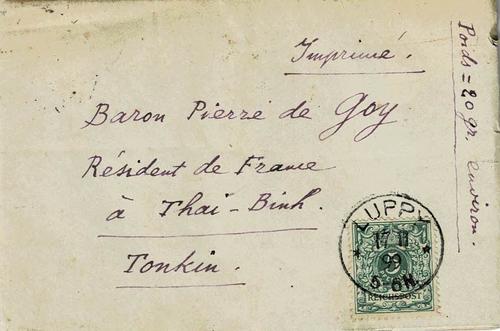 Imprimé.
Poids = 20 gr. environ.
Baron Pierre de Goy
Résident de France
à Thaï-Binh.
Tonkin.
LUPPY
17 11
99
5-6N.
REICHSPOST